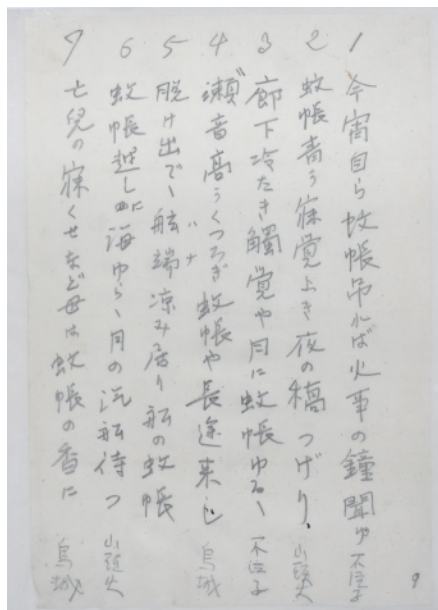 1 今宵自ら蚊帳吊れば火事の鐘聞ゆ 不泣子
2 蚊帳青う寝覚よき夜の稿つげり、 山頭火
3 廊下冷たき觸覚や月に蚊帳ゆるゝ 不泣子
4 瀬音高うくつろぎ蚊帳や長途来し 鳥城
5 脱け出でゝ舷端凉み居り船の蚊帳
バナ
6 蚊帳越しに海ゆらゝ月の汽船待つ 山頭火
7 亡児の寐くせなど母は蚊帳の香に 鳥城
9